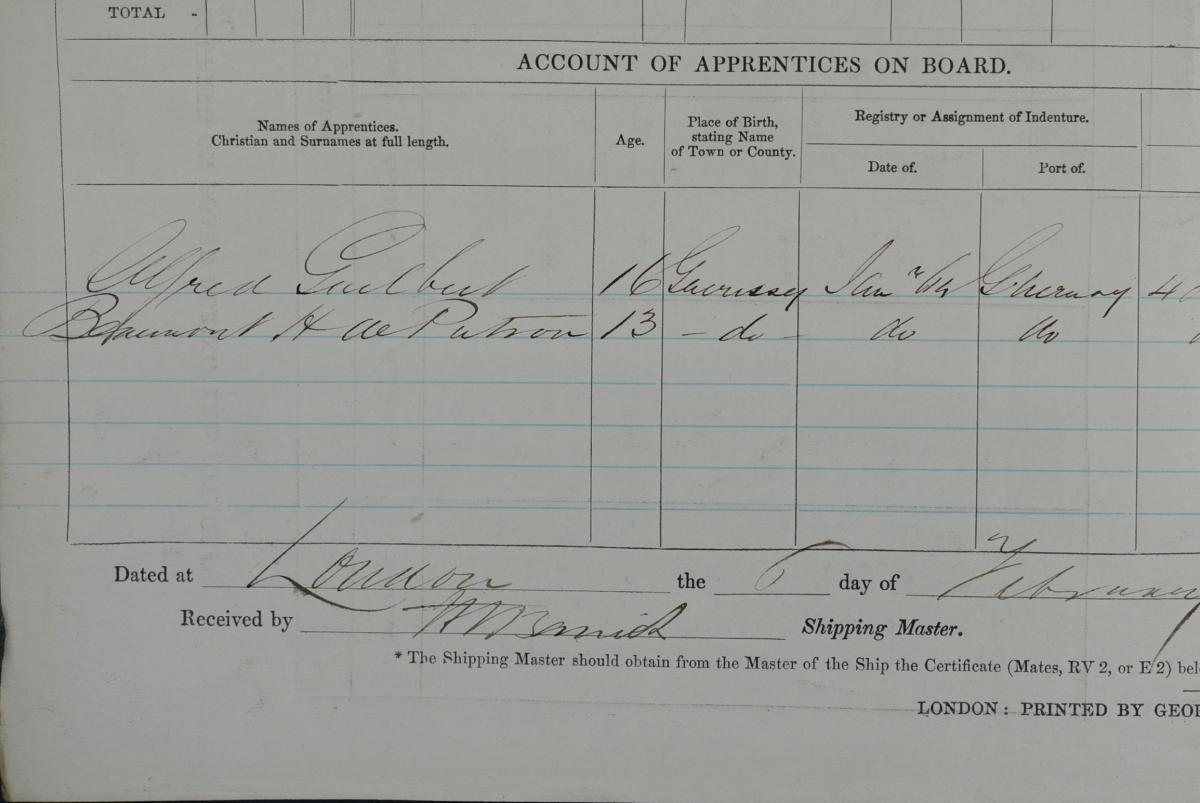 TOTAL -
ACCOUNT OF APPRENTICES ON BOARD.
Names of Apprentices.
Christian and Surnames at full length.
Age.
Place of Birth,
stating Name
of Town or County.
Registry or Assignment of Indenture.
Date of.
Port of.
Alfred Guilbert 16 Guernsey Jany 64 Guernsey 4
Beaumont H de Putron 13 - do - do do
Dated at London the 6 day of February
Received by Shipping Master.
* The Shipping Master should obtain from the Master of the Ship the Certificate (Mates, RV 2, or E 2) bel
LONDON: PRINTED BY GEO